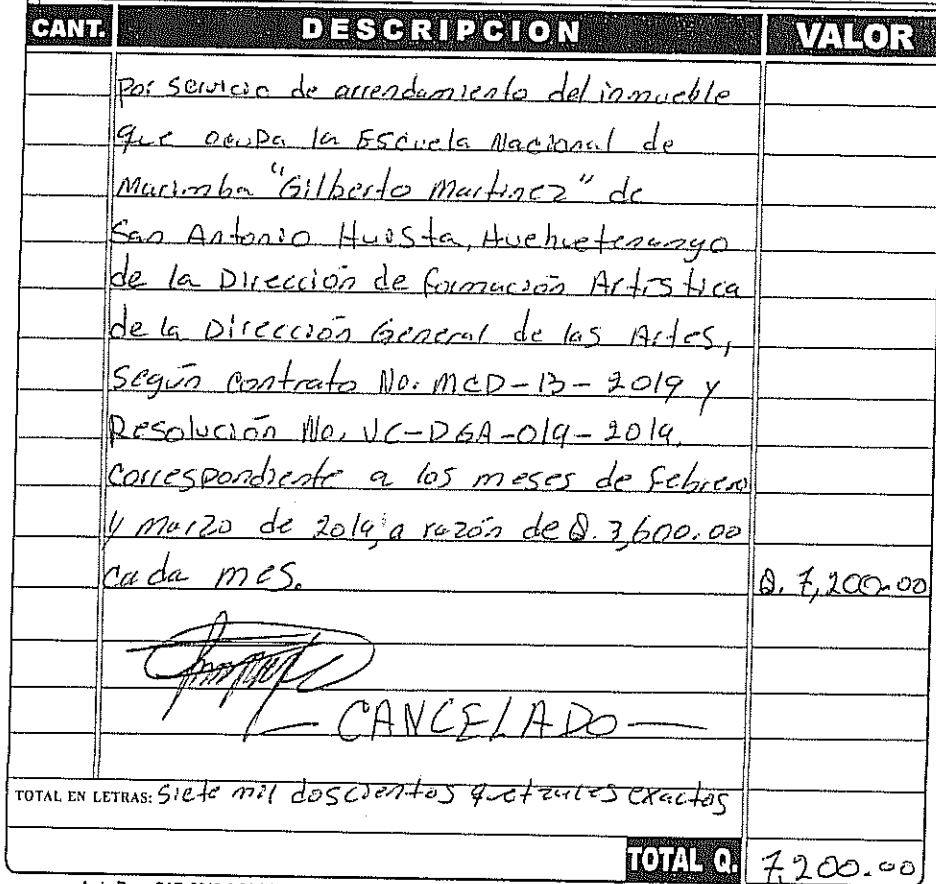 CANT. DESCRIPCION VALOR
Por servicio de arrendamiento del inmueble
que ocupa la Escuela Nacional de
Marimba "Gilberto Martinez" de
San Antonio Huista, Huehuetenango
de la Dirección de formación Artistica
de la Dirección General de las Artes,
según contrato No. MCD-13-2019 y
Resolución No. VC-DGA-019-2019,
correspondiente a los meses de febrero
y marzo de 2019, a razón de Q. 3,600.00
cada mes. Q. 7,200.00
CANCELADO
TOTAL EN LETRAS: Siete mil doscientos quetzales exactos
TOTAL Q. 7,200.00